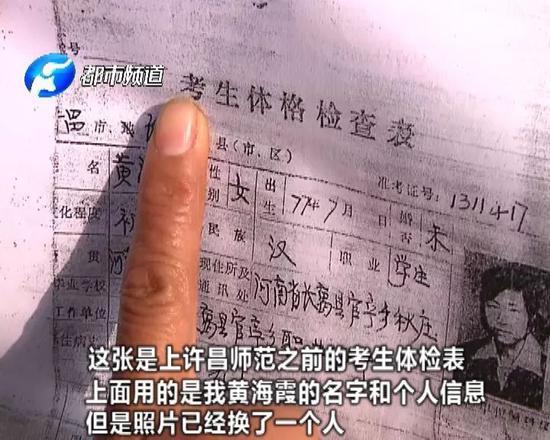 号
都市频道
考生体格检查表
市、 县(市、区)
准考证号:1311417
名 黄 性别 女 出生 77年7月 日 婚否 未
文化程度 初 民族 汉 职业 学生
贯 河 现住所及通讯处 河南省长葛县官亭乡秋庄
毕业学校 葛县官亭乡职
工作单位
病史
这张是上许昌师范之前的考生体检表
上面用的是我黄海霞的名字和个人信息
但是照片已经换了一个人